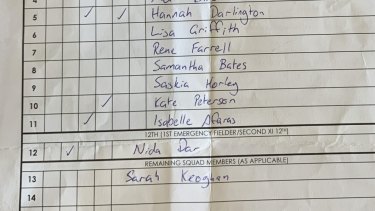 5 Hannah Darlington
6 Lisa Griffith
7 Rene Farrell
8 Samantha Bates
9 Saskia Horley
10 Kate Peterson
11 Isabelle Afaras
12TH (1ST EMERGENCY FIELDER/SECOND XI 12th)
12 Nida Dar
REMAINING SQUAD MEMBERS (AS APPLICABLE)
13 Sarah Keoghan
14